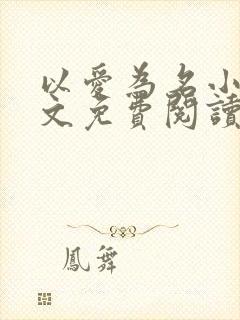 以愛為名小
文免費閱讀
鳳舞